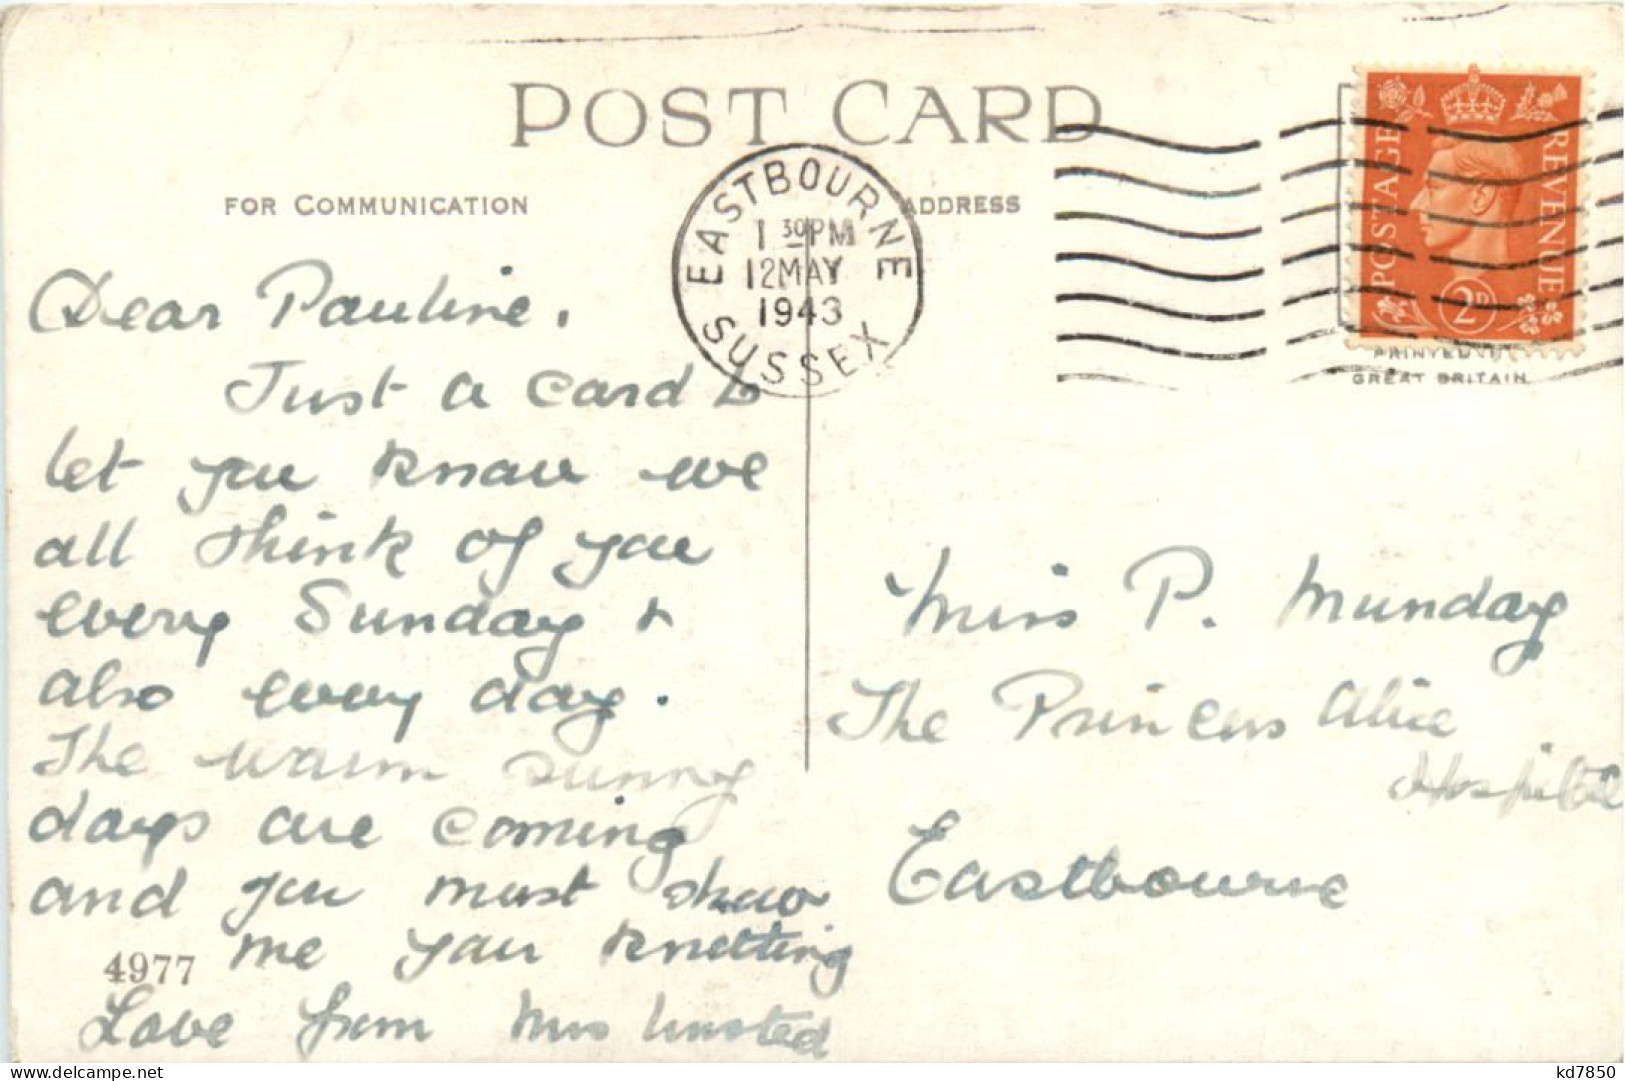 POST CARD
FOR COMMUNICATION
ADDRESS
EASTBOURNE
1 30PM
12MAY
1943
SUSSEX
POSTAGE
REVENUE
2D
PRINTED IN
GREAT BRITAIN
Dear Pauline.
Just a card to
let you know we
all think of you
every Sunday +
also every day.
The warm sunny
days are coming
and you must show
me your knitting
Love from Mrs
4977
Miss P. Munday
The Princess Alice
Hospital
Eastbourne
oldthing.de
kd7850